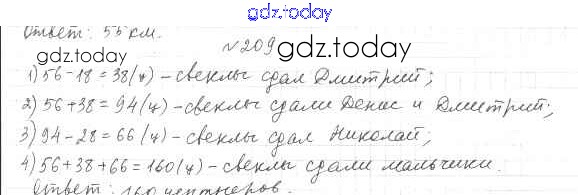 gdz.today
Ответ: 55 км.
№209
gdz.today
gdz.today
1) 56-18=38(ц)-свеклы сдал Дмитрий;
2) 56+38=94(ц)-свеклы сдали Денис и Дмитрий;
3) 94-28=66(ц)-свеклы сдал Николай;
4) 56+38+66=160(ц)-свеклы сдали мальчики.
Ответ: 160 центнеров.